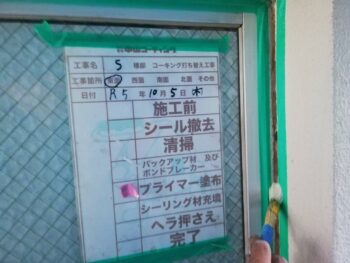 工事名 S 様邸 コーキング打ち替え工事
工事箇所 東面 西面 南面 北面 その他
日付 R5年10月5日 木
施工前
シール撤去
清掃
バックアップ材 及び
ボンドブレーカー
プライマー塗布
シーリング材充填
ヘラ押さえ
完了